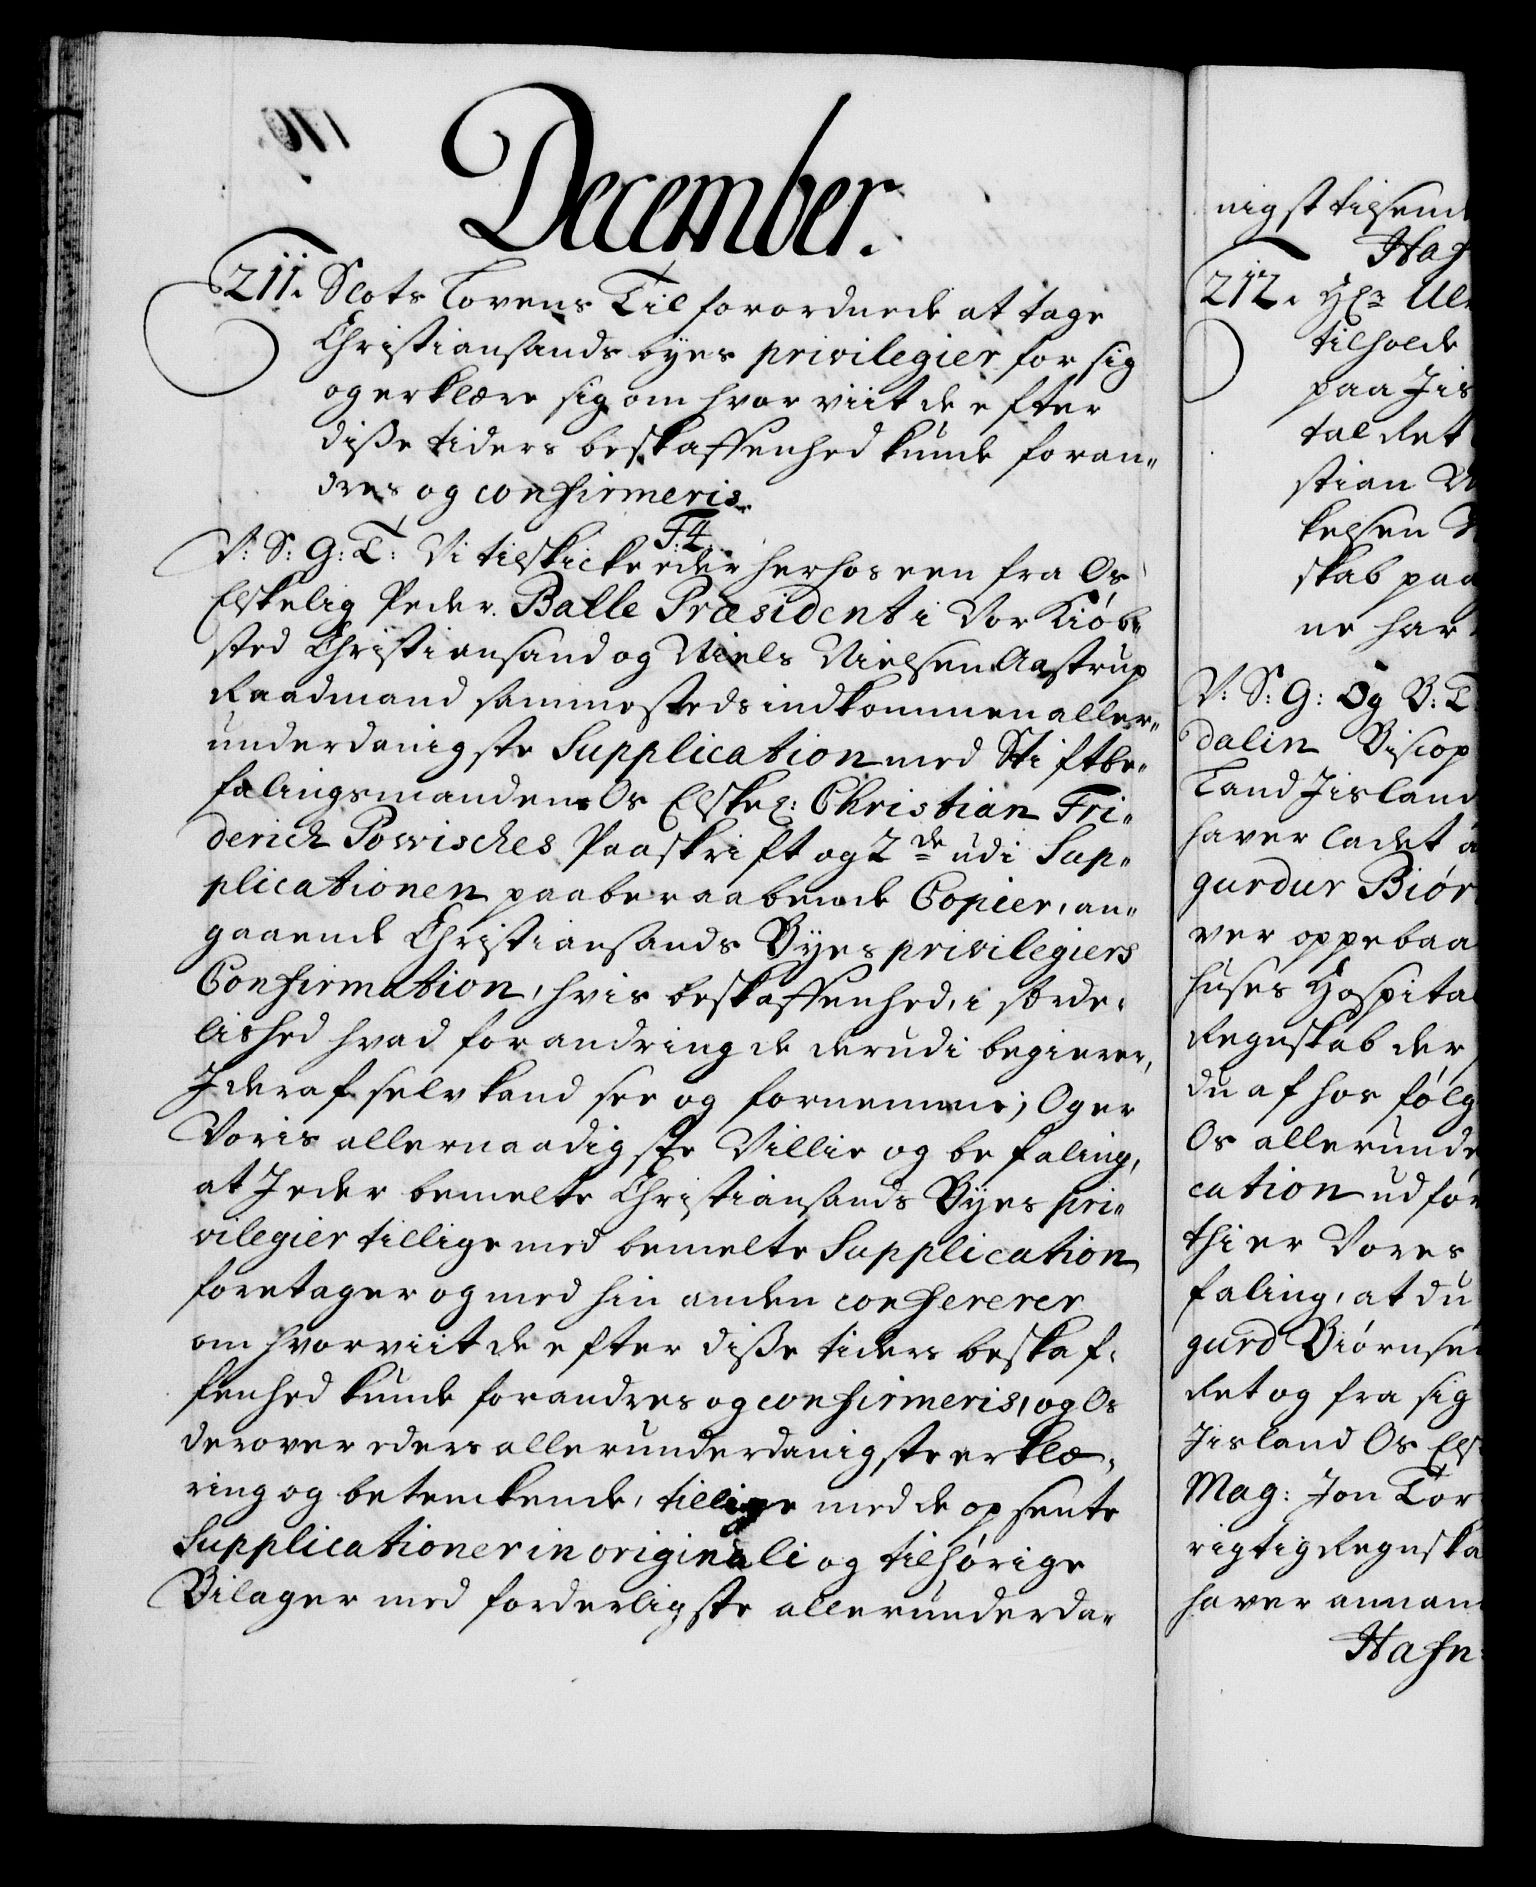 December.
211. Slots Lovens Tilforordnede at tage
Christiansands byes privilegier for sig
og erklære sig om hvor viit de efter
disse tiders beskaffenhed kunde foran-
dres og confirmeris.
F. 4.
V: S: G: T: Vi tilskicke eder herhos een fra Os
Elskelig Peder Balle Præsident i Vor Kiøb-
sted Christiansand og Niels Nielsen Aastrup
Raadmand sammesteds indkommen aller-
underdanigste Supplication med Stiftbe-
falingsmandens Os Elskel: Christian Fri-
derich Powisches Paaskrift og 2de udi Sup-
plicationen paaberaabende Copier, an-
gaaende Christiansands Byes privilegiers
Confirmation, hvis beskaffenhed, i særde-
lished hvad forandring de derudi begierer,
I deraf selv kand see og fornemme; Og er
Voris allernaadigste Villie og befaling,
at I eder bemelte Christiansands Byes pri-
vilegier tillige med bemelte Supplication
foretager og med hin anden confererer
om hvorviit de efter disse tiders beskaf-
fenhed kunde forandres og confirmeris, og Os
derover eders allerunderdanigste erklæ-
ring og betenckende, tillige med de opsente
Supplicationer in originali og tilhørige
Bilager med forderligste allerunderda-
nigst tilsend
Haf
212. Hr Ul
tilholde
paa Jis
tal det
stian
kelsen
skab paa
ne har
V: S: G: Og B: T
dalin Biscop
Land Jisland
haver ladet
gurdur Biør
ver oppebaa
huses Hospita
Regnskab der
du af hos følg
Os allerunde
cation udfør
thi er Vores
faling, at du
gurd Biørnsen
det og fra sig
Jisland Os Els
Mag: Jon Tor
rigtig Regnska
haver annam
Hafn: